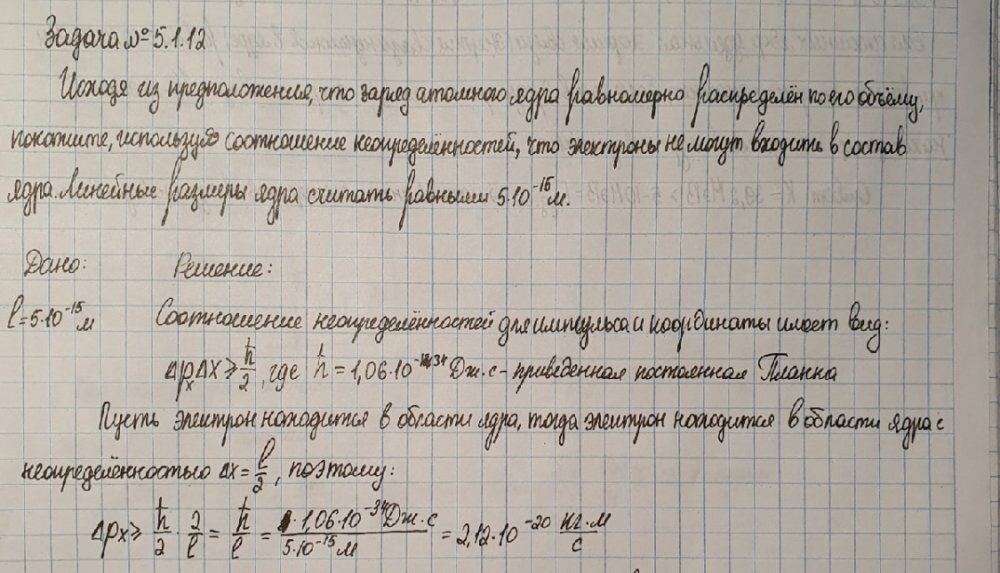 Задача № 5.1.12
Исходя из предположения, что заряд атомного ядра равномерно распределён по его объёму,
покажите, используя соотношение неопределённостей, что электроны не могут входить в состав
ядра. Линейные размеры ядра считать равными 5·10⁻¹⁵ м.
Дано: Решение:
l = 5·10⁻¹⁵ м Соотношение неопределённостей для импульса и координаты имеет вид:
Δpₓ Δx ≥ ħ/2, где ħ = 1,06·10⁻³⁴ Дж·с - приведенная постоянная Планка
Пусть электрон находится в области ядра, тогда электрон находится в области ядра с
неопределённостью Δx = l/2, поэтому:
Δpx ≥ ħ/2 · 2/l = ħ/l = 1,06·10⁻³⁴ Дж·с / 5·10⁻¹⁵ м = 2,12·10⁻²⁰ кг·м/с